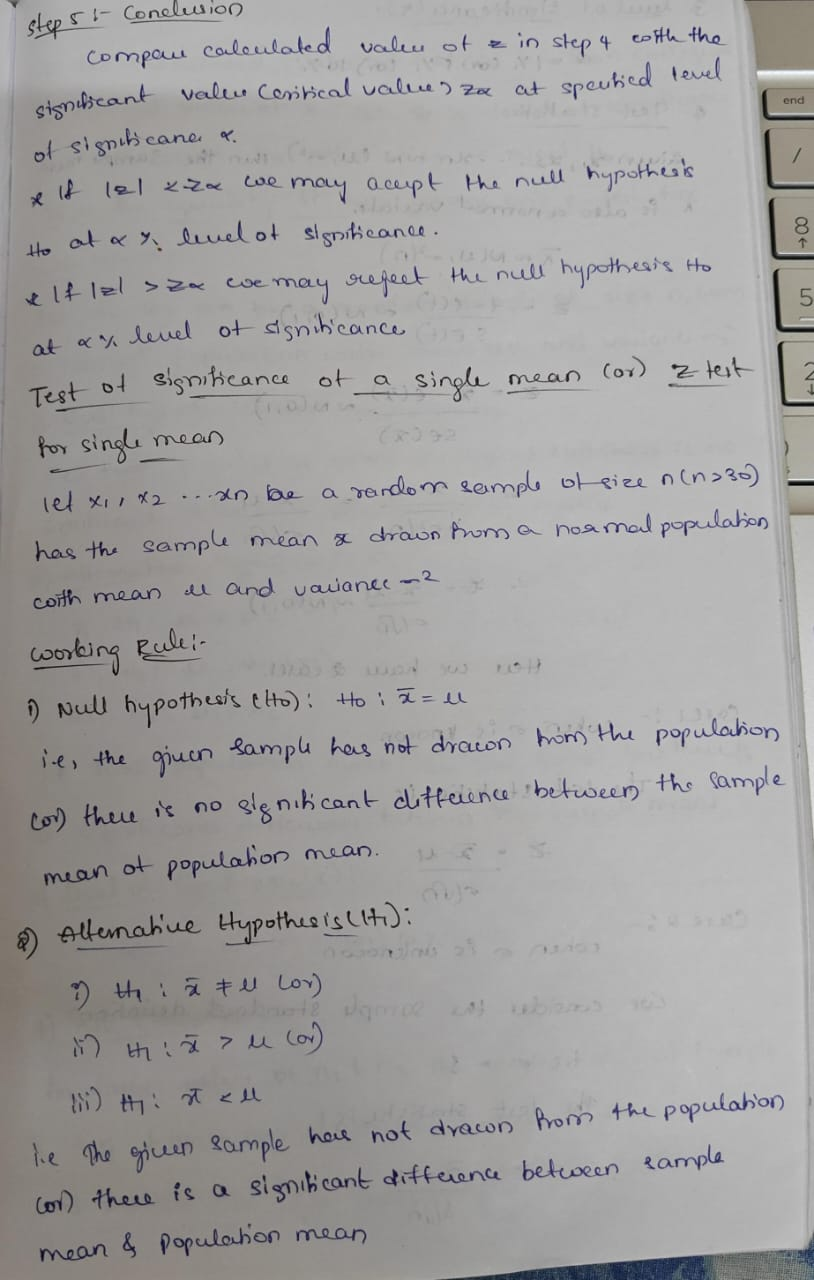 Step 5 :- Conclusion
Compare calculated value of z in step 4 with the
significant value (critical value) zα at specified level
of significance α.
* If |z| < zα we may accept the null hypothesis
H₀ at α % level of significance.
* If |z| > zα we may reject the null hypothesis H₀
at α % level of significance
Test of significance of a single mean (or) z test
for single mean
let x₁, x₂ ...xn be a random sample of size n (n>30)
has the sample mean x drawn from a normal population
with mean μ and variance -²
Working Rule:-
1) Null hypothesis (H₀): H₀ : x̄ = μ
i.e, the given sample has not drawn from the population
(or) there is no significant difference between the sample
mean of population mean.
2) Alternative Hypothesis (H₁):
i) H₁ : x̄ ≠ μ (or)
ii) H₁ : x̄ > μ (or)
iii) H₁ : x̄ < μ
i.e The given sample has not drawn from the population
(or) there is a significant difference between sample
mean & population mean
end
/
8
↑
5
2
↓